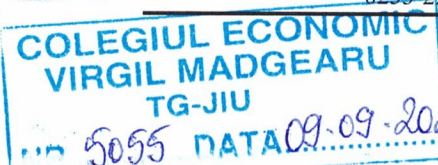 COLEGIUL ECONOMIC
VIRGIL MADGEARU
TG-JIU
5055 DATA 09-09-20